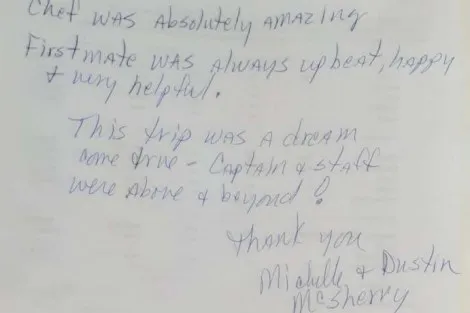 Chef was absolutely amazing
Firstmate was always upbeat, happy
& very helpful.
This trip was a dream
come true - Captain & staff
were above & beyond!
Thank you
Michelle & Dustin
McSherry